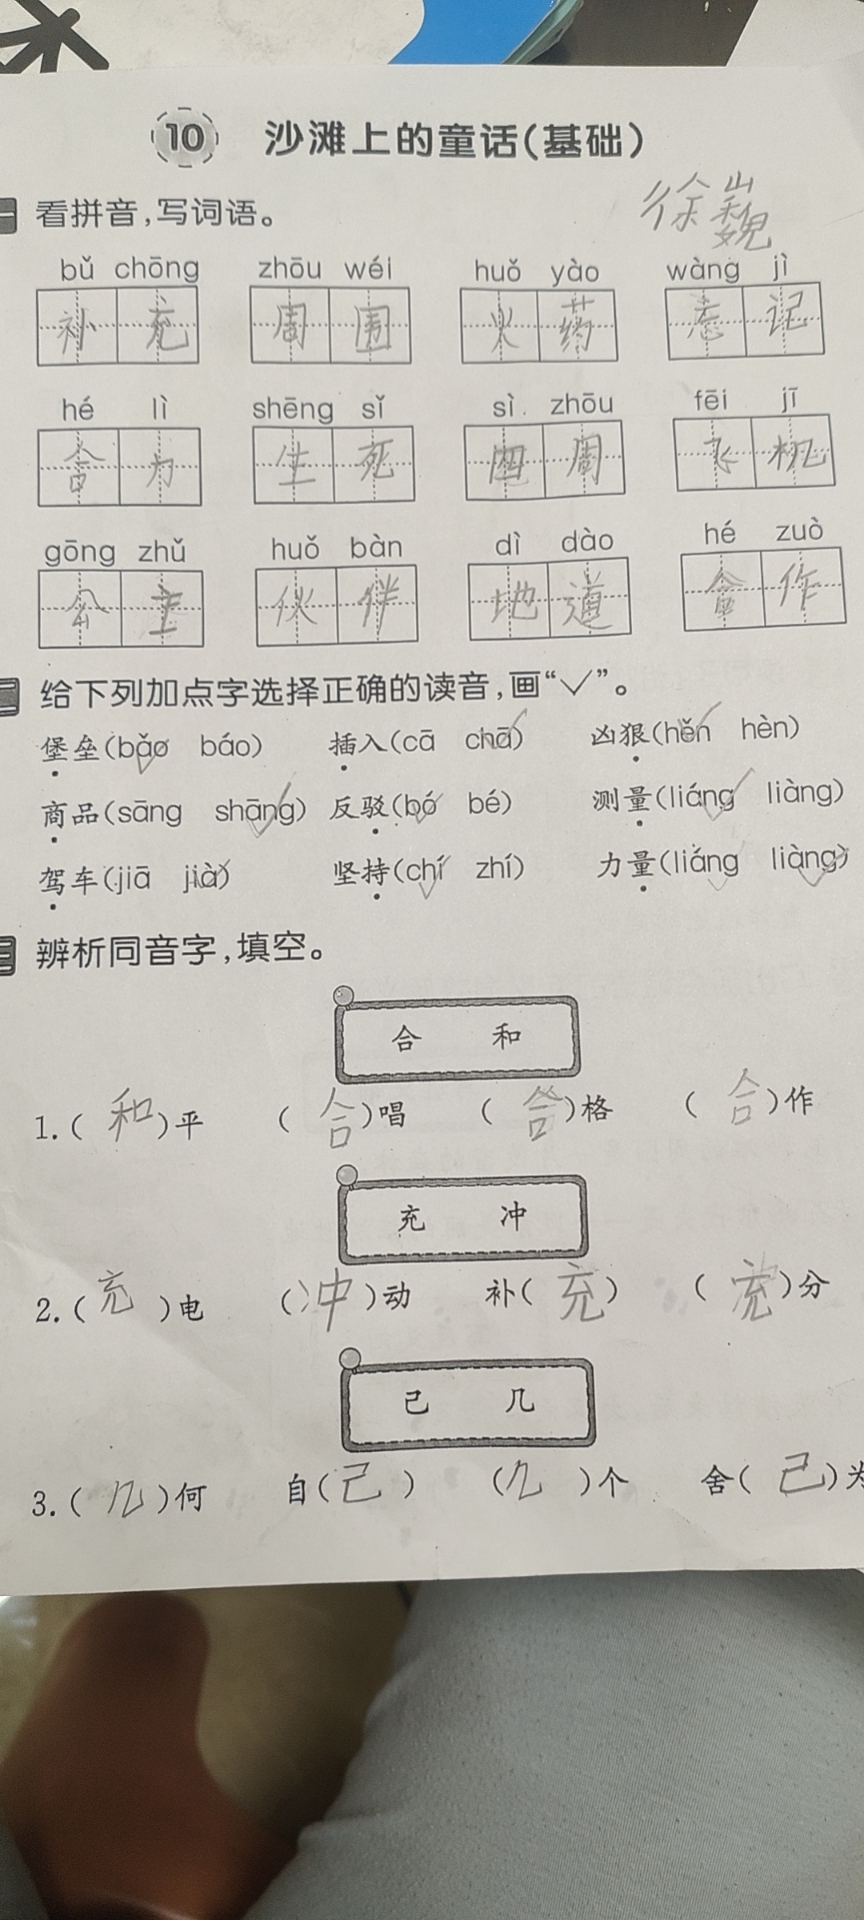 10 沙滩上的童话(基础)
徐巍
一 看拼音,写词语。
bǔ chōng zhōu wéi huǒ yào wàng jì
补充 周围 火药 忘记
hé lì shēng sǐ sì zhōu fēi jī
合力 生死 四周 飞机
gōng zhǔ huǒ bàn dì dào hé zuò
公主 伙伴 地道 合作
二 给下列加点字选择正确的读音,画“✓”。
堡垒(bǎo báo) 插入(cā chā) 凶狠(hěn hèn)
商品(sāng shāng) 反驳(bó bé) 测量(liáng liàng)
驾车(jiā jià) 坚持(chí zhí) 力量(liáng liàng)
三 辨析同音字,填空。
合 和
1.(和)平 (合)唱 (合)格 (合)作
充 冲
2.(充)电 (冲)动 补(充) (充)分
己 几
3.(几)何 自(己) (几)个 舍(己)为